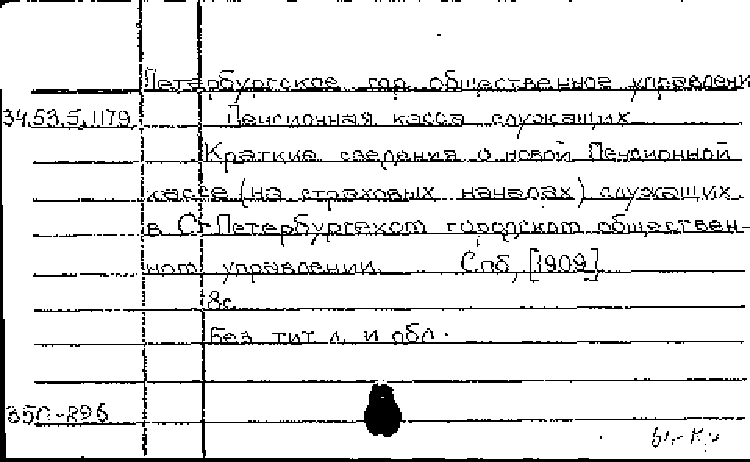 Петербургское гор. общественное управлени
34.53.5.1179 Пенсионная касса служащих
Краткие сведения о новой Пенсионной
кассе (на страховых началах) служащих
в С-Петербургском городском обществен-
ном управлении. Спб, [1909]
8с.
Без тит. л. и обл.
350-896